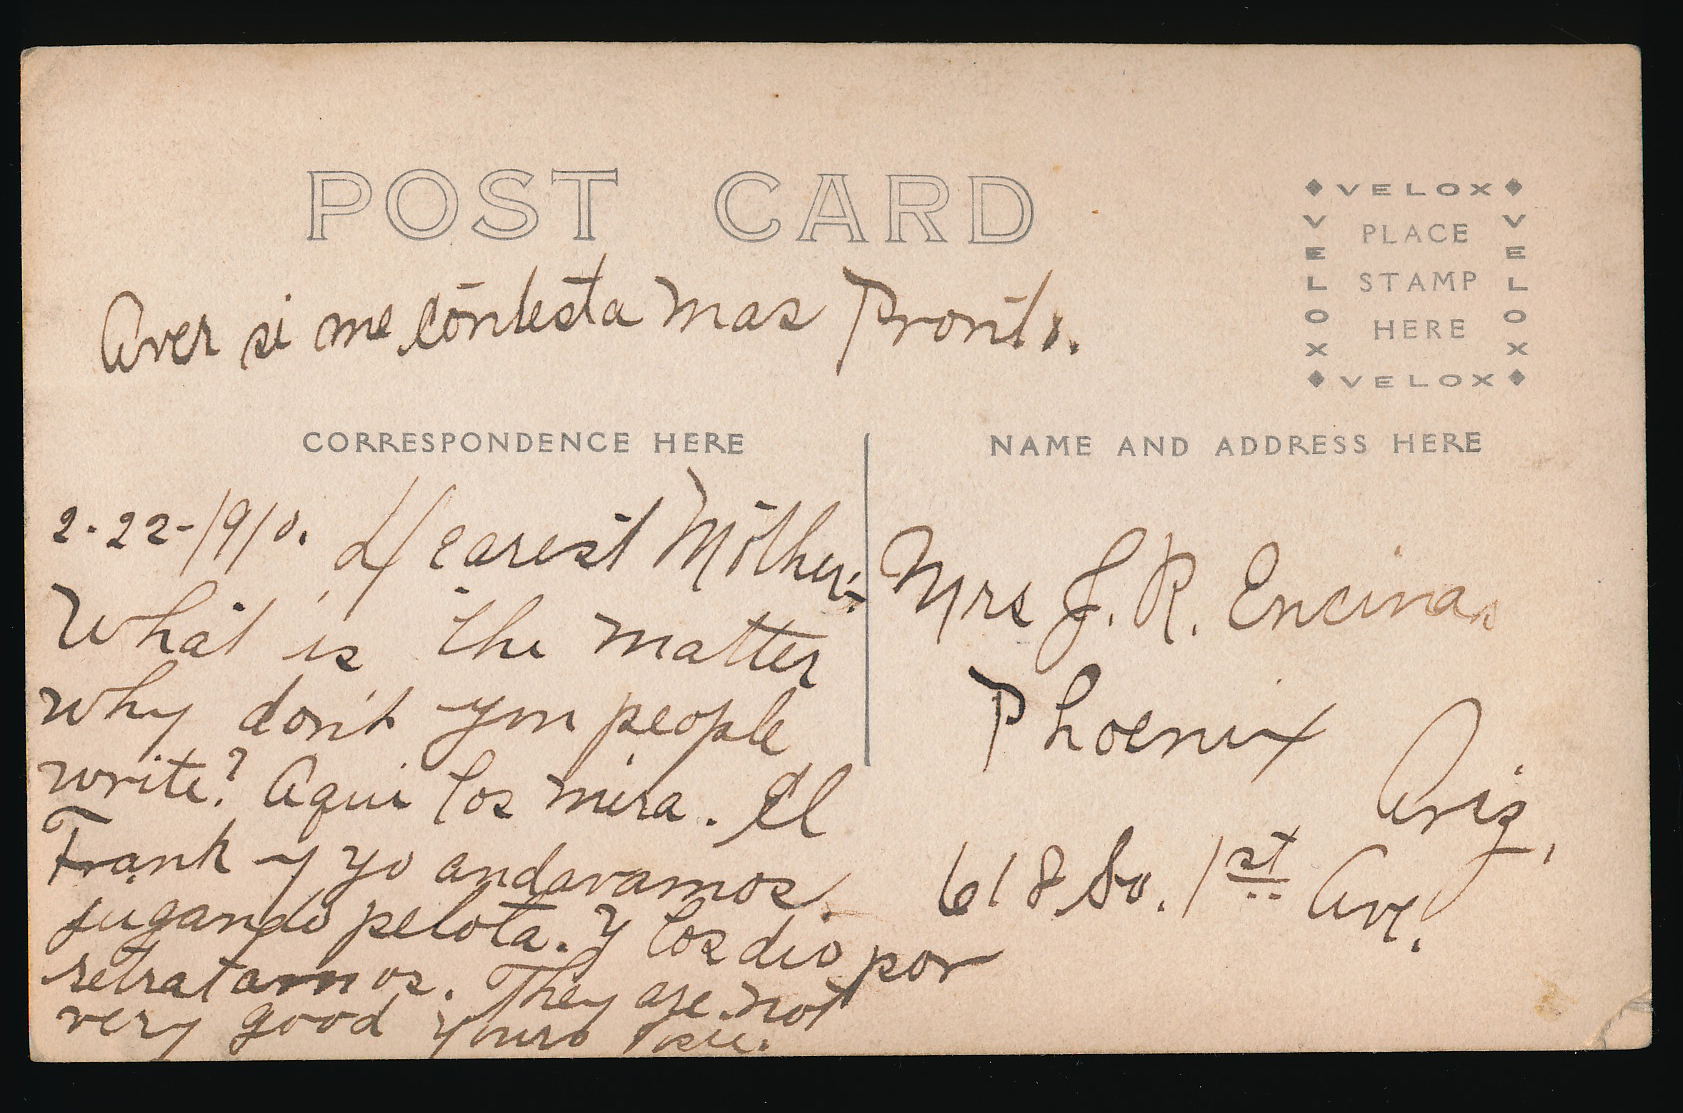 POST CARD
Aver si me contesta mas Pronto.
VELOX
VELOX
VELOX
VELOX
PLACE
STAMP
HERE
CORRESPONDENCE HERE
2-22-1910. Dearest Mother:-
What is the matter
why don't you people
write? Aqui los mira. El
Frank y yo andavamos
jugando pelota. Y los dio por
retratamos. They are not
very good Yours
NAME AND ADDRESS HERE
Mrs J. R. Encinas
Phoenix
Ariz,
618 So. 1st Ave.